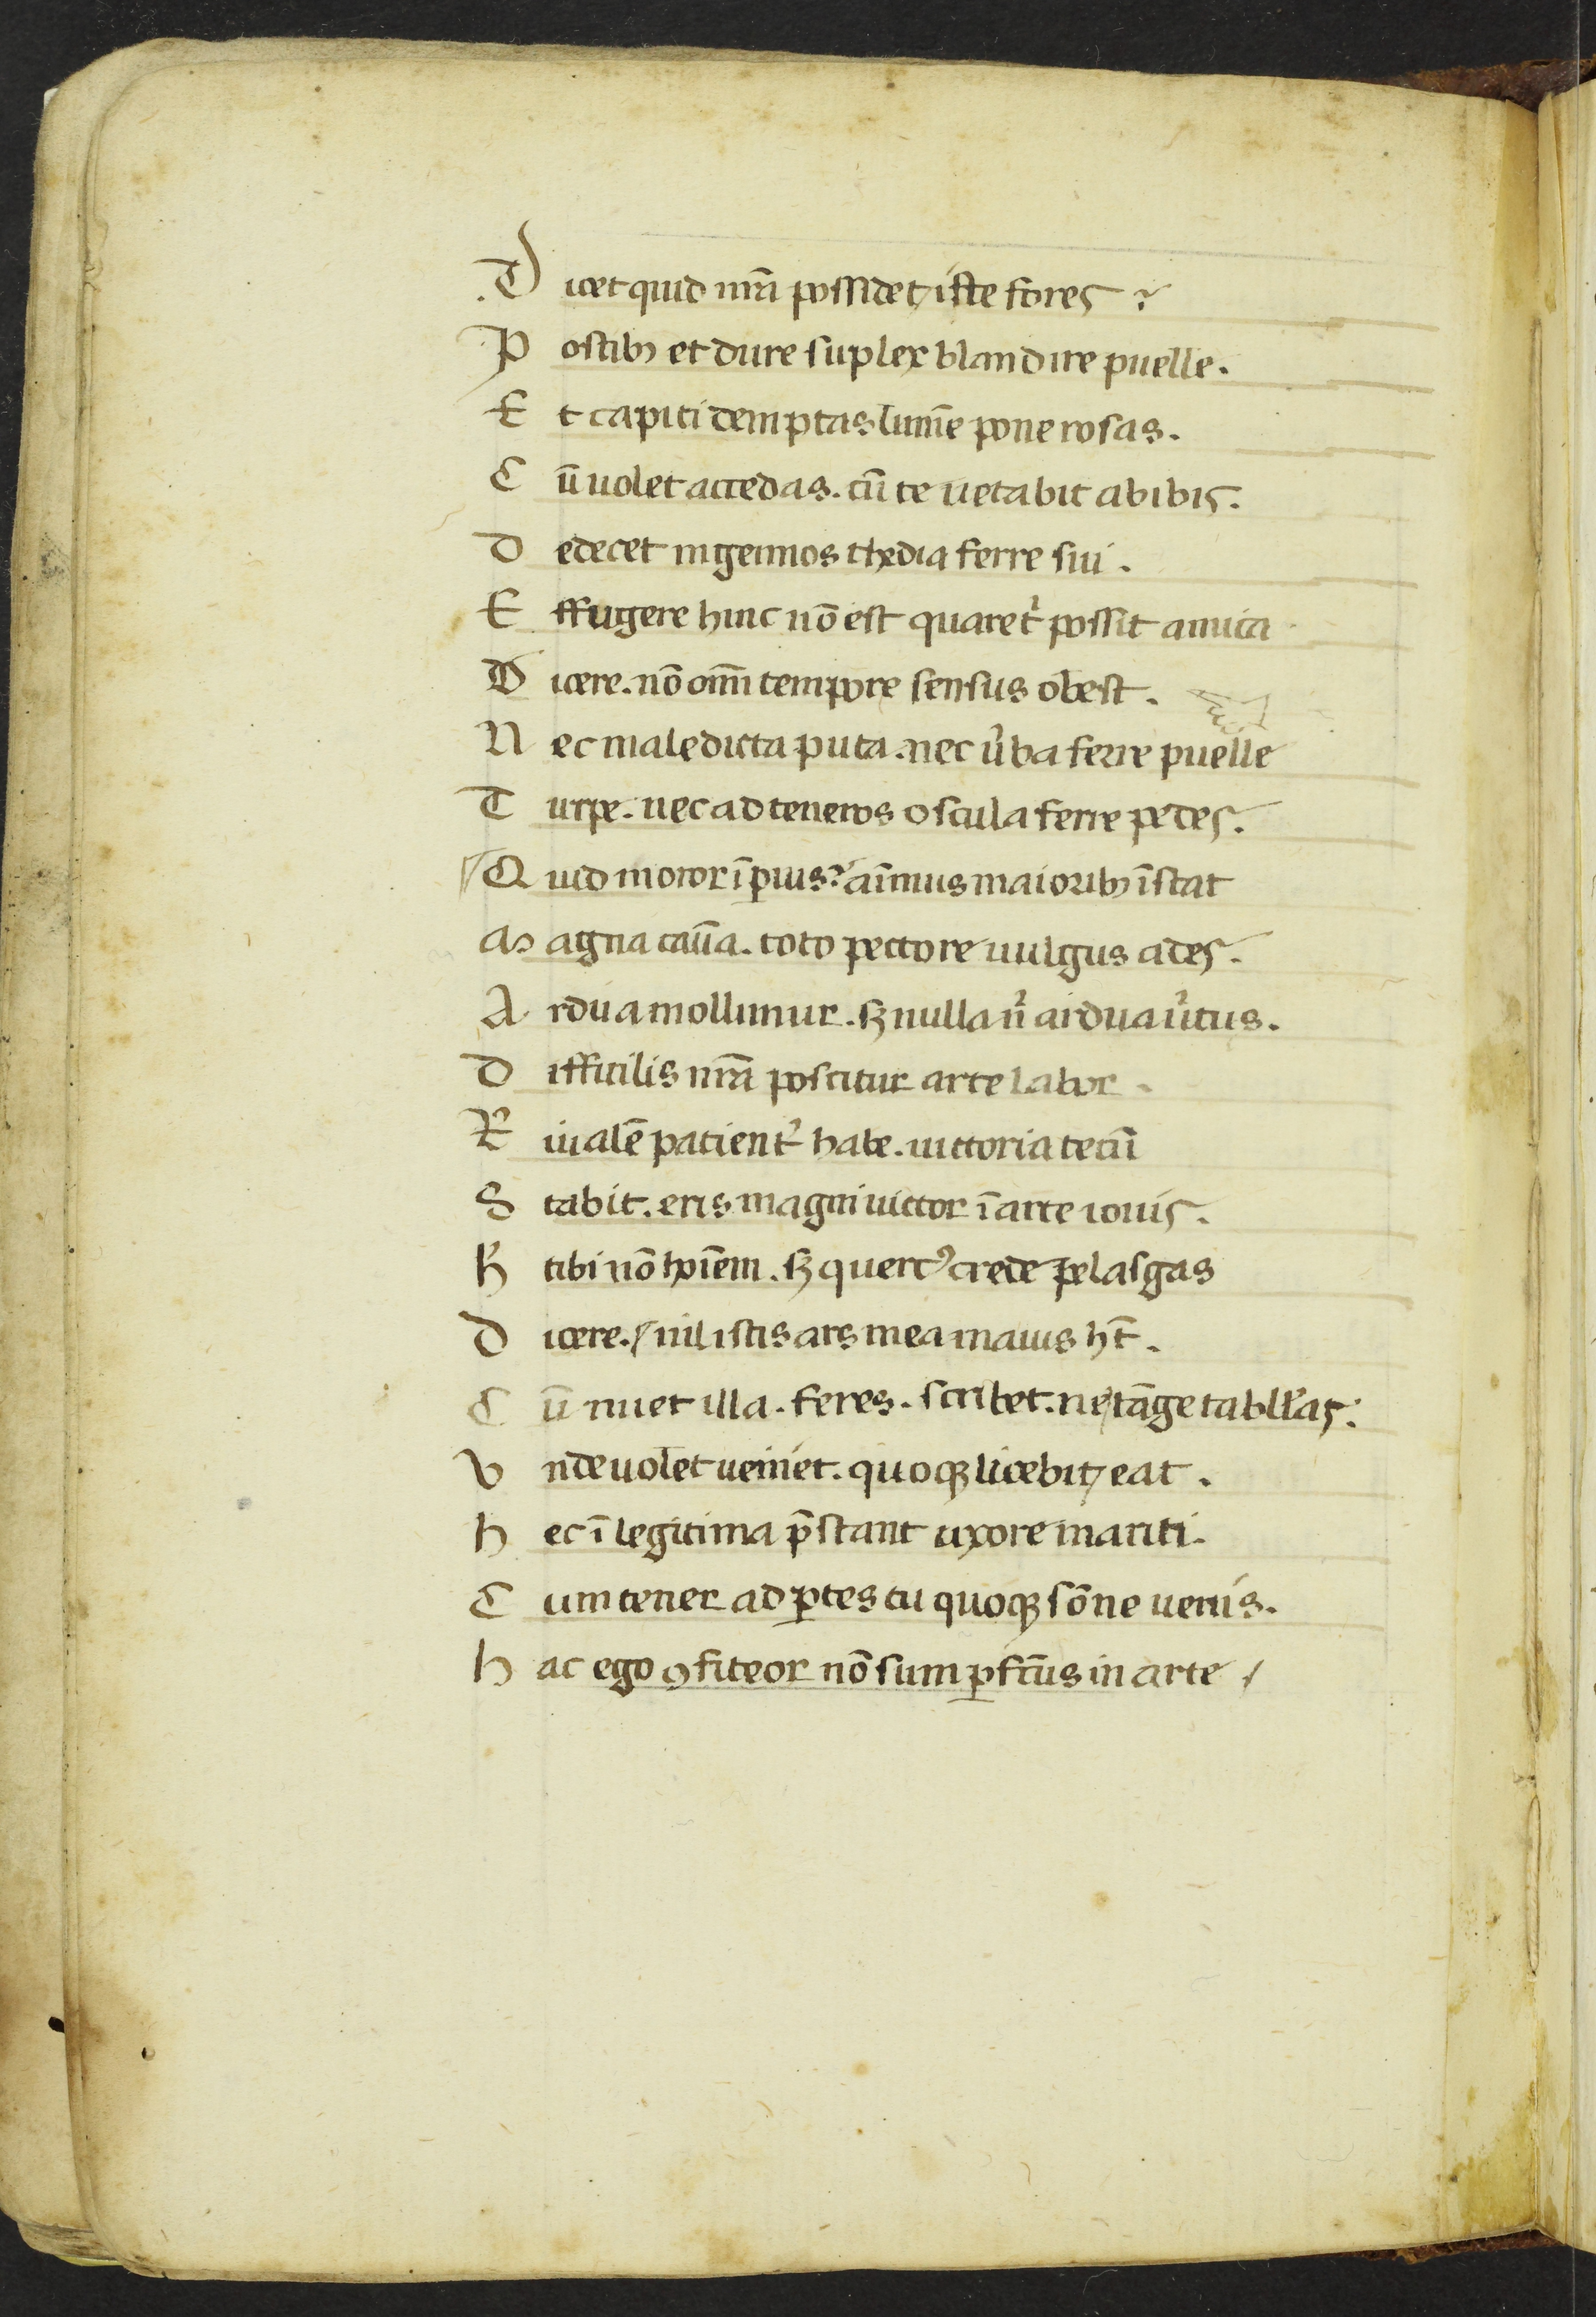 D icet quid nr̄a possidet / iste fores?
P ostibꝫ et dure suplex blandire puelle.
E t capiti demptas lumīe pone rosas.
C ū uolet accedas. cū te uetabit abibis.
D edecet ingenuos thedia ferre sui.
E ffugere hinc nō est quaret᷑ possit amica
D icere. nō om̄i tempore sensus obest.
N ec maledicta puta. nec u᷑ba ferre puelle
T urpe. nec ad teneros oscula ferre pedes.
Q uid moror ī ꝑuis? aīmus maioribꝫ īstat
M agna canā. toto pectore uulgus ades.
A rdua mollimur. sꝫ nulla n̄ ardua u᷑tus.
D ifficilis nr̄a poscitur arte labor.
R iualē patient᷑ habe. uictoria tecū
S tabit. eris magni uictor ī arte iouis.
H tibi nō hoīem. sꝫ querc᷒ crede pelasgas
D icere. / nil istis ars mea maius ht̄.
C ū nuet illa. feres. scribet. ne tāge tabll'as.
V nde uolet ueniet. quoqꝫ licebit / eat.
h ec ī legitima p̄stant uxore mariti.
C um tener ad ꝑtes tu quoqꝫ sōne uenis.
h ac ego ꝯfiteor nō sum ꝑfc̄us in arte /